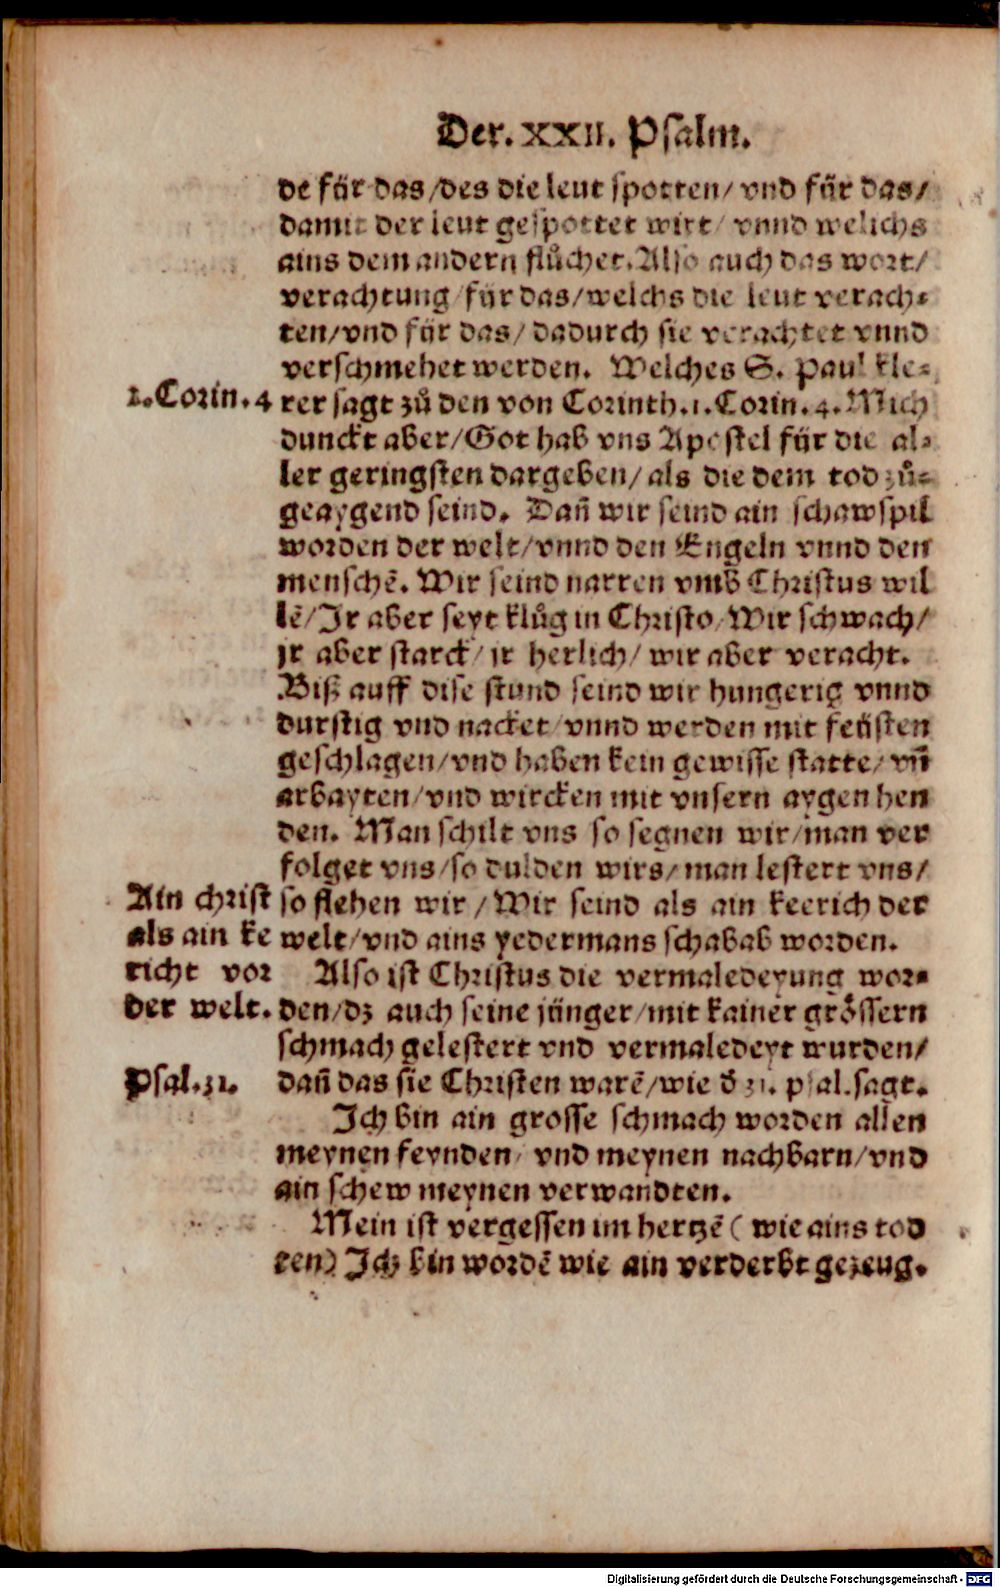 Der. XXII. Psalm.
de für das/des die leut spotten/ vnd für das/
damit der leut gespottet wirt/ vnnd welichs
ains dem andern flůchet. Also auch das wort/
verachtung/für das/welchs die leut verach⸗
ten/vnd für das/ dadurch sie verachtet vnnd
verschmehet werden. Welches S. Paul kle⸗
1. Corin. 4
rer sagt zů den von Corinth. 1. Corin. 4. Mich
dunckt aber/Got hab vns Apostel für die al⸗
ler geringsten dargeben/ als die dem tod zů⸗
geaygend seind. Dañ wir seind ain schawspil
worden der welt/vnnd den Engeln vnnd den
menschẽ. Wir seind narren vmb Christus wil
lẽ/Ir aber seyt klůg in Christo/Wir schwach/
jr aber starck/ jr herlich/ wir aber veracht.
Biß auff dise stund seind wir hungerig vnnd
durstig vnd nacket/vnnd werden mit feüsten
geschlagen/vnd haben kein gewisse statte/ vñ
arbayten/vnd wircken mit vnsern aygen hen
den. Man schilt vns so segnen wir/man ver
folget vns/so dulden wirs/ man lestert vns/
Ain christ
als ain ke
richt vor
der welt.
so flehen wir / Wir seind als ain keerich der
welt/vnd ains yedermans schabab worden.
Also ist Christus die vermaledeyung wor⸗
den/dz auch seine jünger/mit kainer grössern
schmach gelestert vnd vermaledeyt wurden/
Psal. 31.
dañ das sie Christen warẽ/wie d̕ 31. psal. sagt.
Ich bin ain grosse schmach worden allen
meynen feynden/ vnd meynen nachbarn/vnd
ain schew meynen verwandten.
Mein ist vergessen im hertzẽ (wie ains tod
ten) Ich bin wordẽ wie ain verderbt gezeug.
Digitalisierung gefördert durch die Deutsche Forschungsgemeinschaft - DFG